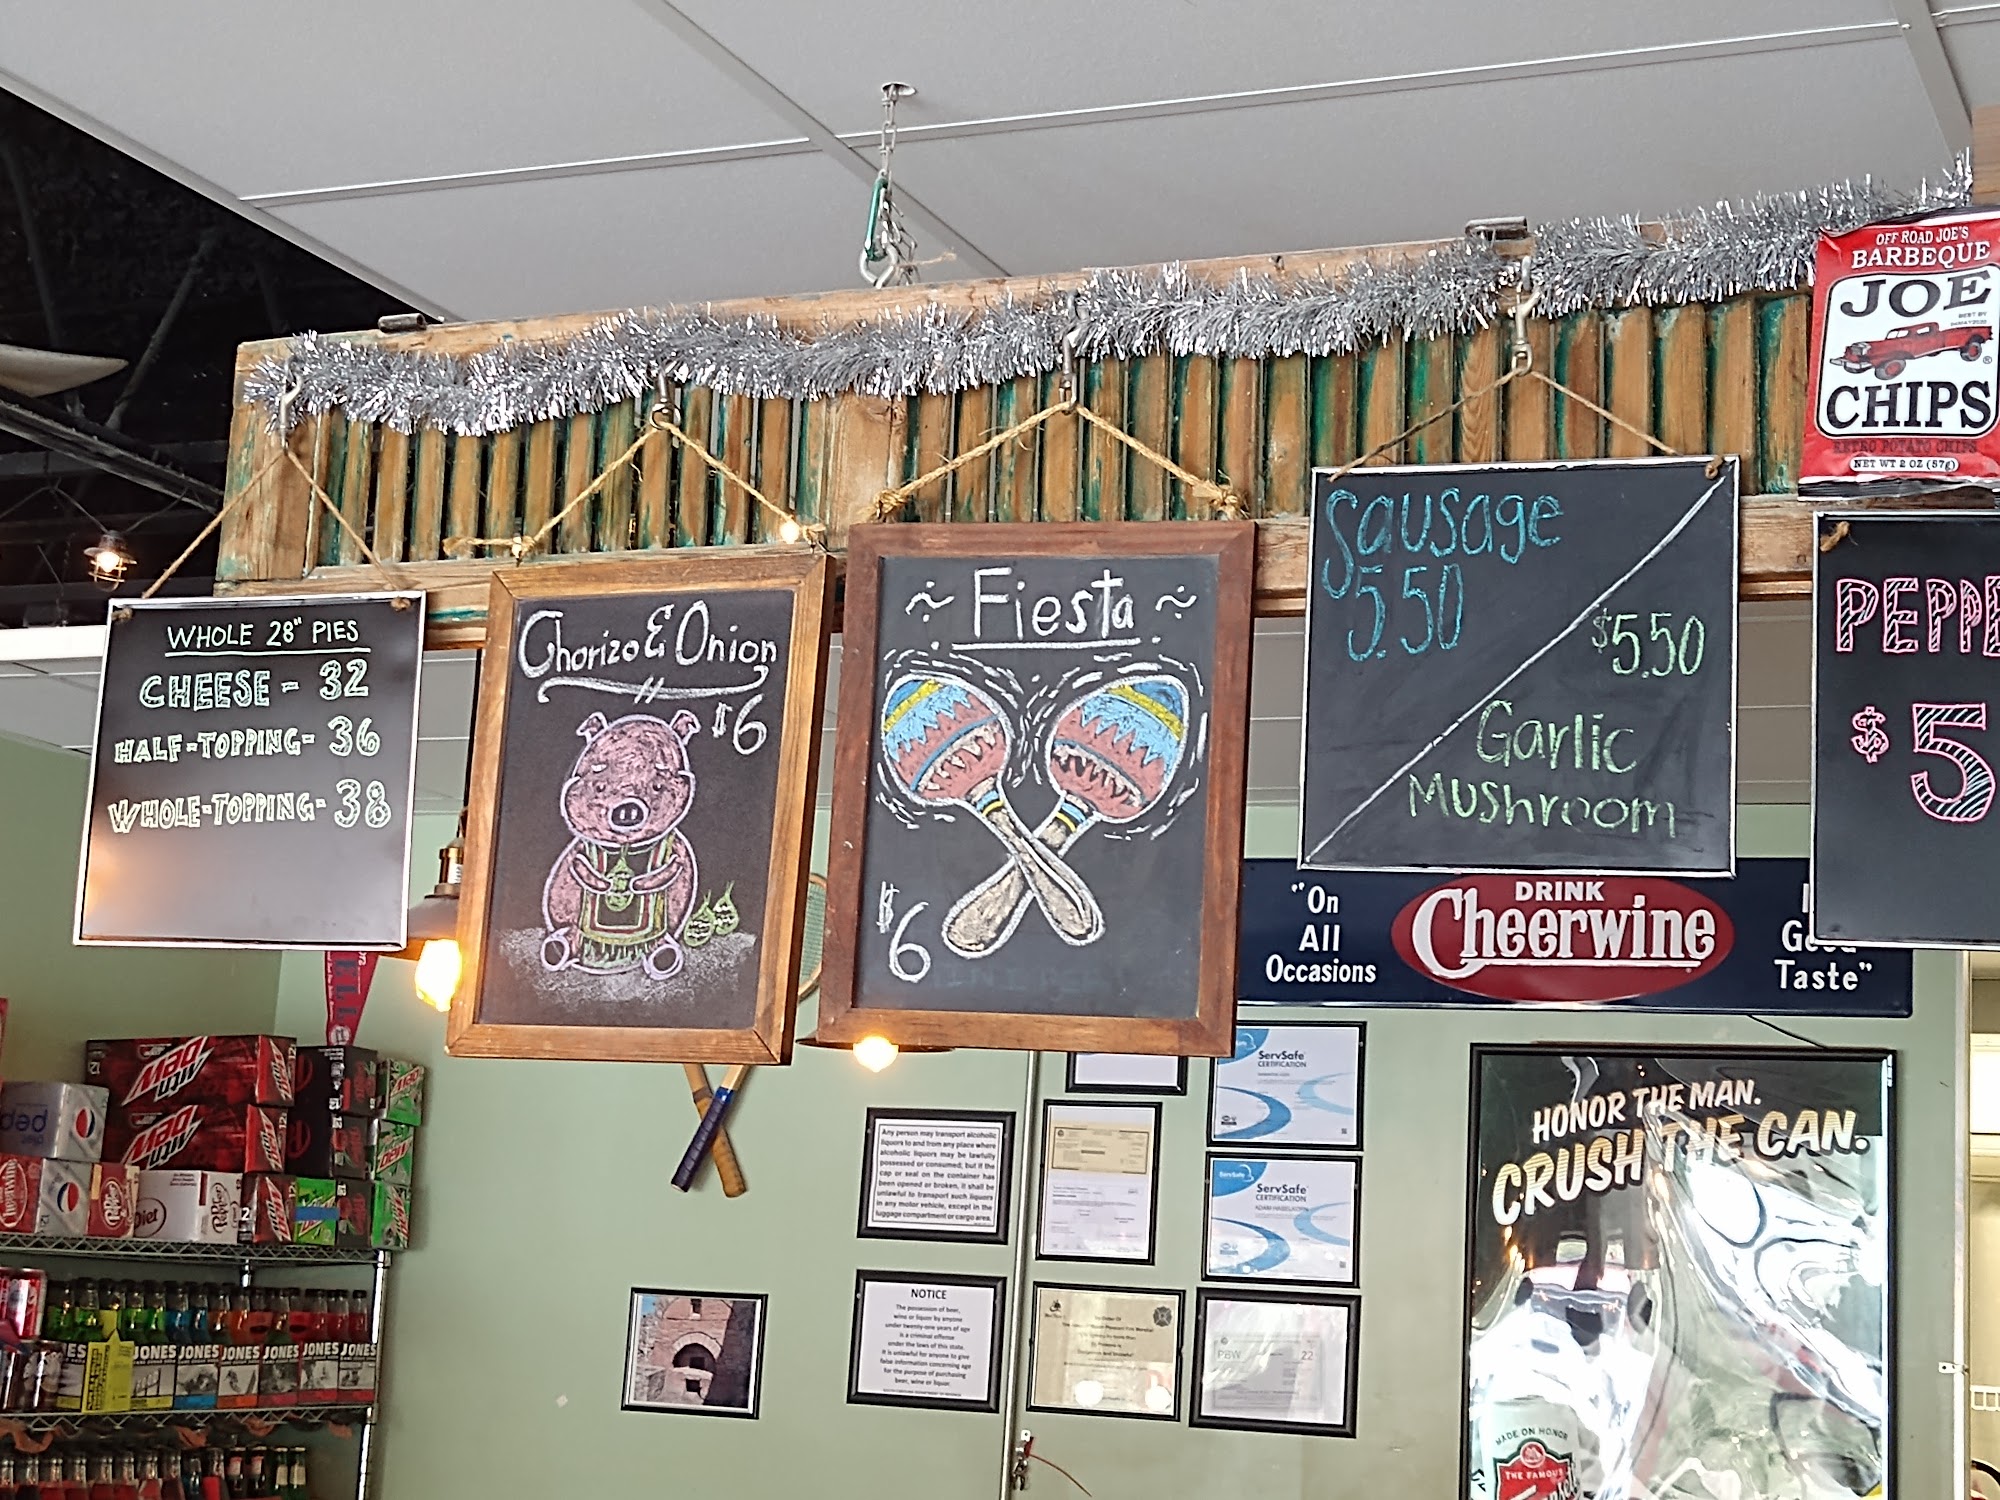 WHOLE 28" PIES
CHEESE - 32
HALF-TOPPING- 36
WHOLE-TOPPING- 38
Chorizo & Onion
$6
~ Fiesta ~
$6
Sausage
5.50
$5.50
Garlic
Mushroom
PEPPE
$5
OFF ROAD JOE'S
BARBEQUE
JOE
CHIPS
KETTLE POTATO CHIPS
NET WT 2 OZ (57g)
"On
All
Occasions
DRINK
Cheerwine
Good
Taste"
HONOR THE MAN.
CRUSH THE CAN.
MADE ON HONOR
THE FAMOUS
Any person may transport alcoholic
liquors to and from any place where
alcoholic liquors may be lawfully
possessed or consumed; but if the
cap or seal on the container has
been opened or broken, it shall be
unlawful to transport such liquors
in any motor vehicle, except in the
luggage compartment or cargo area.
NOTICE
The possession of beer,
wine or liquor by anyone
under twenty-one years of age
is a criminal offense
under the laws of this state.
It is unlawful for anyone to give
false information concerning age
for the purpose of purchasing
beer, wine or liquor.
ServSafe
CERTIFICATION
ServSafe
ServSafe
CERTIFICATION
PBW
22
ELL
Mtn Dew
Mtn Dew
diet
pepsi
Cheerwine
Dr Pepper
Diet
Dr Pepper
JONES
JONES
JONES
JONES
JONES
JONES